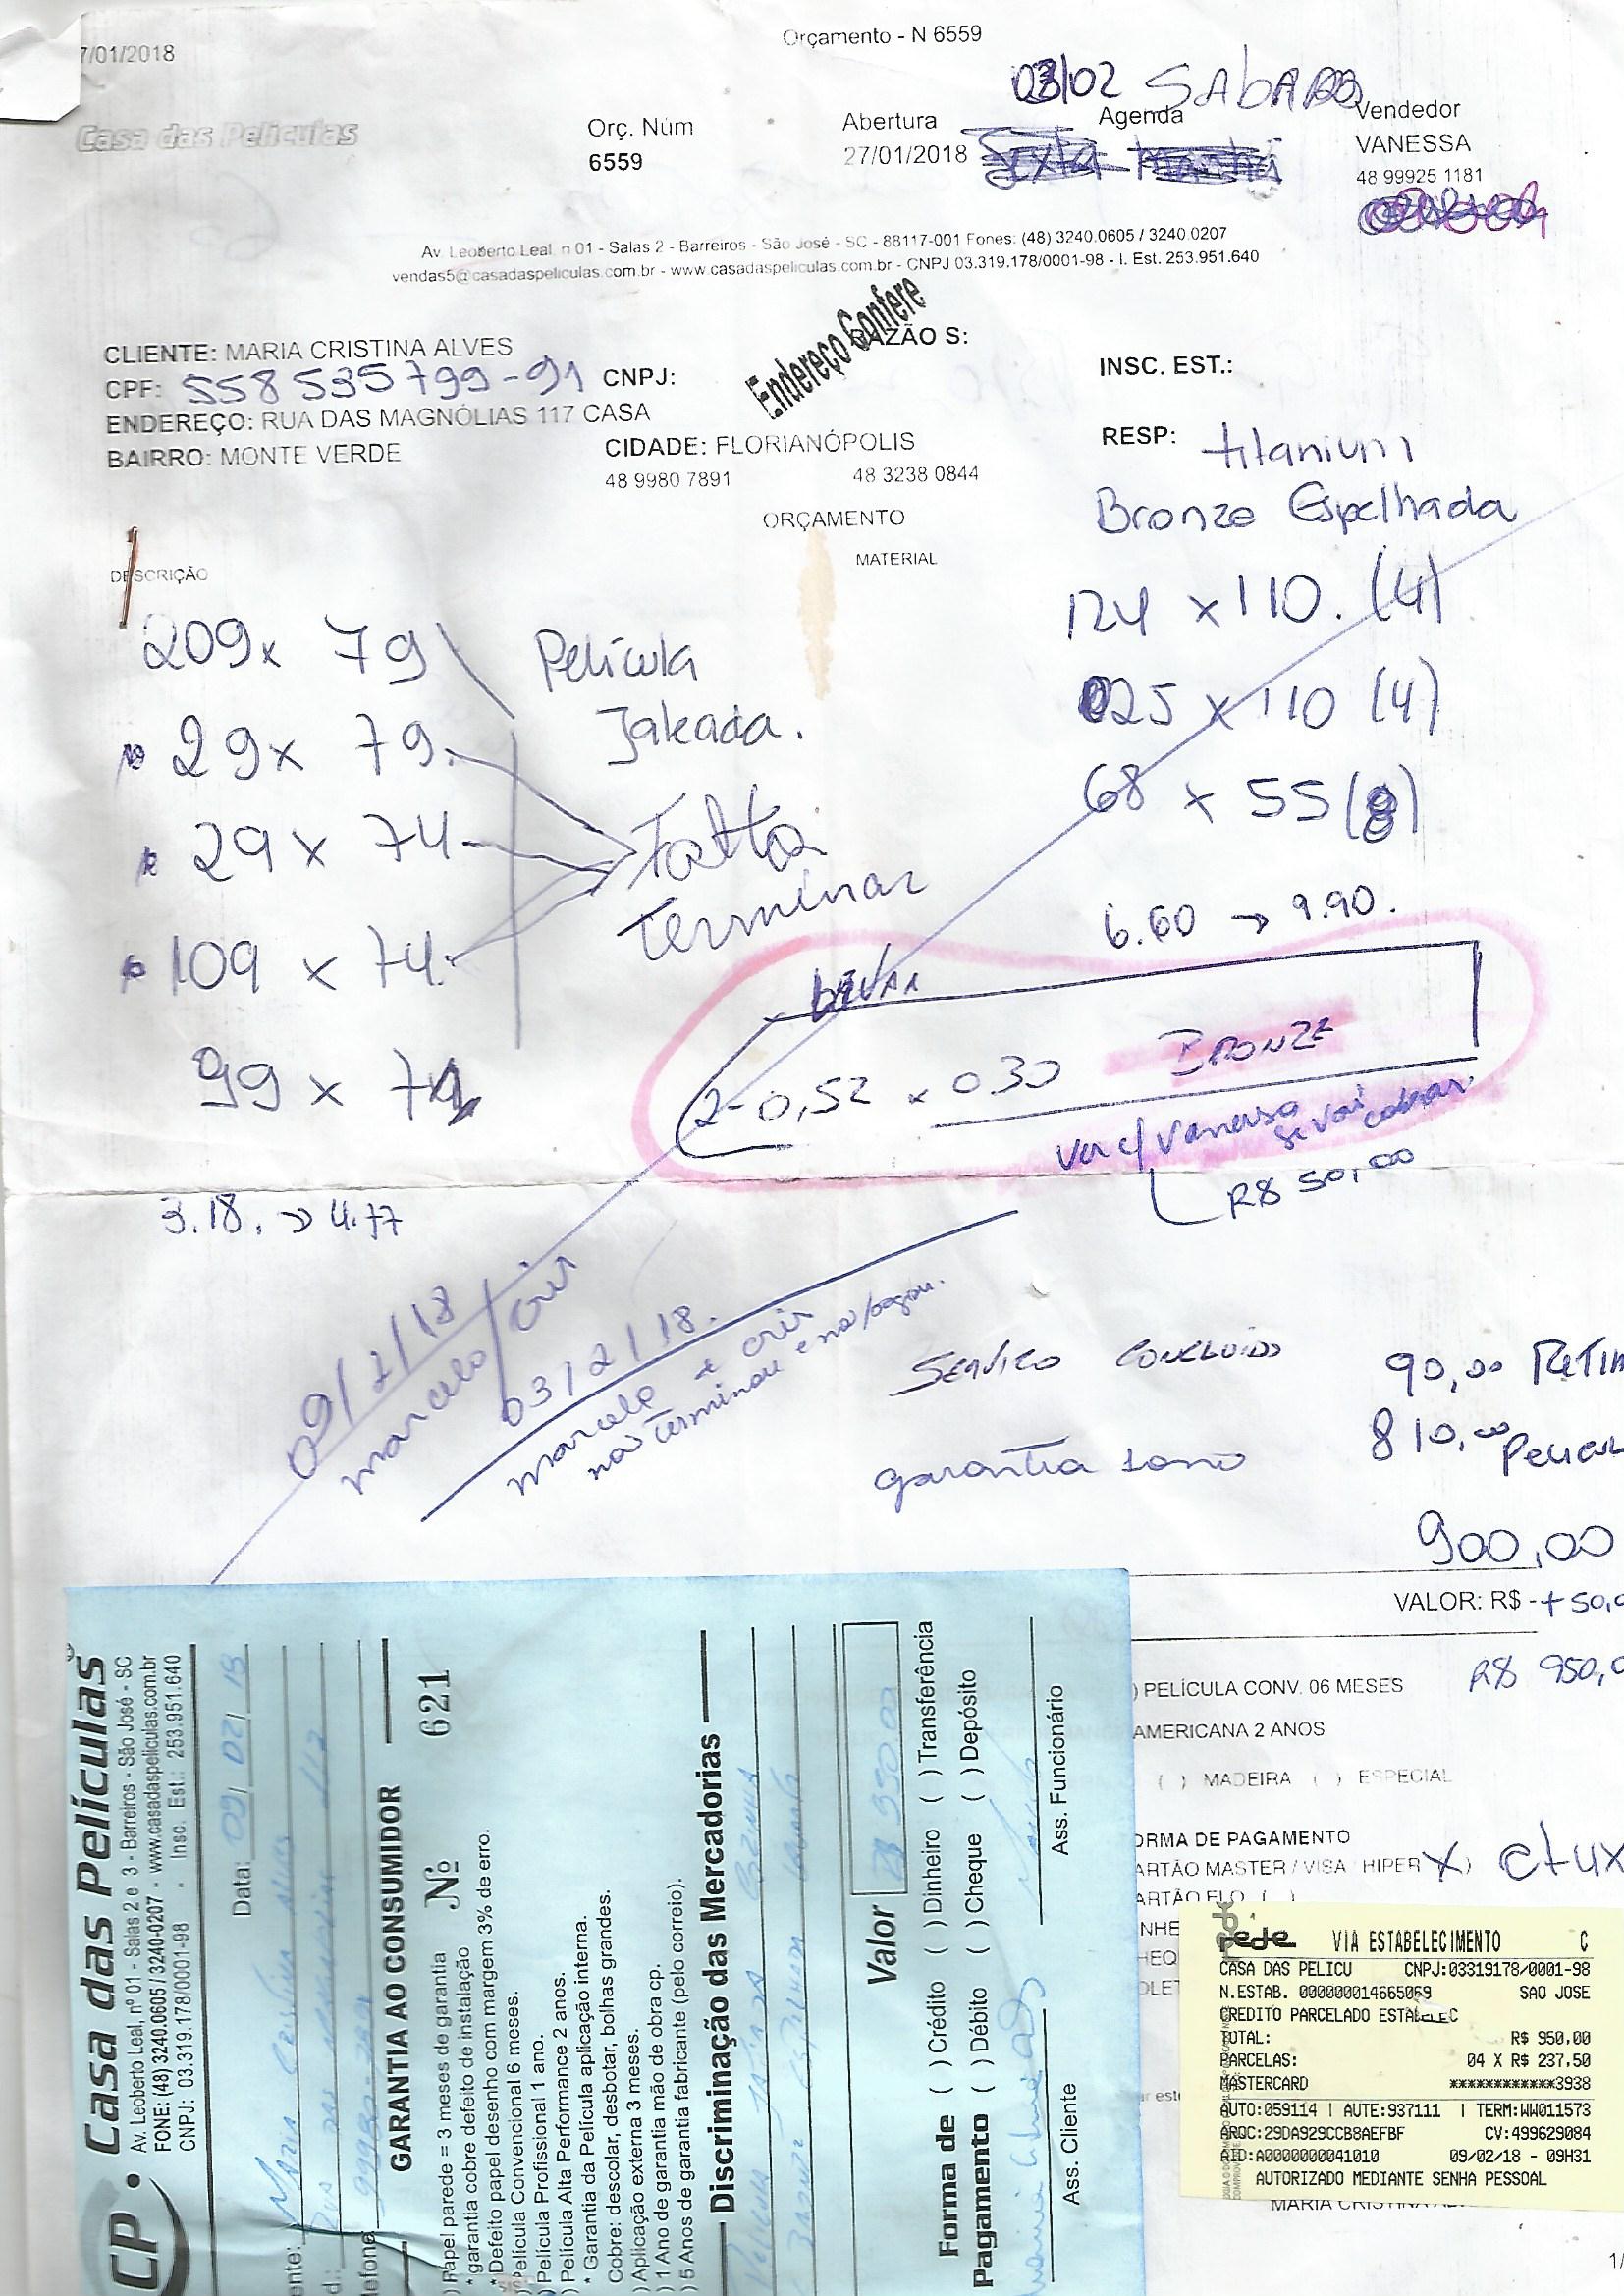 7/01/2018
Orçamento - N 6559
03/02 SAbADO
Casa das Películas
Orç. Núm
6559
Abertura
27/01/2018
Agenda
Sexta
Vendedor
VANESSA
48 99925 1181
Av. Leoberto Leal, n 01 - Salas 2 - Barreiros - São José - SC - 88117-001 Fones: (48) 3240.0605 / 3240.0207
vendas5@casadaspeliculas.com.br - www.casadaspeliculas.com.br - CNPJ 03.319.178/0001-98 - I. Est. 253.951.640
Endereço Confere
CLIENTE: MARIA CRISTINA ALVES
RAZÃO S:
CPF: 558 535 799-91 CNPJ:
INSC. EST.:
ENDEREÇO: RUA DAS MAGNÓLIAS 117 CASA
BAIRRO: MONTE VERDE
CIDADE: FLORIANÓPOLIS
48 9980 7891 48 3238 0844
RESP: titanium
Bronze Espelhada
ORÇAMENTO
DESCRIÇÃO
MATERIAL
209x 79
29x 79.
29 x 74
109 x 74.
99 x 74
Película
Jateada.
Falta
Terminar
124 x 110. (4)
025 x 110 (4)
68 x 55 (8)
6.60 → 9.90.
LEVAR
2-0,52 x 030 BRONZE
Ver c/ Vanessa se vai cobrar.
R$ 50,00
3.18. → 4.77
09/2/18
marcelo/cris
03/2/18.
marcelo + cris
não terminou e não pagou.
SERVIÇO CONCLUIDO
garantia 1 ano
90,00 RETIR
810,00 Pelicul
900,00
VALOR: R$ -+ 50,0
R$ 950,0
) PELÍCULA CONV. 06 MESES
AMERICANA 2 ANOS
( ) MADEIRA ( ) ESPECIAL
ORMA DE PAGAMENTO
ARTÃO MASTER / VISA / HIPER X ) c/4x
ARTÃO ELO ( )
NHE
HEQ
OLET
CP • Casa das Películas
Av. Leoberto Leal, nº 01 - Salas 2 e 3 - Barreiros - São José - SC
FONE: (48) 3240.0605 / 3240-0207 - www.casadaspeliculas.com.br
CNPJ: 03.319.178/0001-98 - Insc. Est.: 253.951.640
Data: 09/ 02/ 18
ente: Maria Cristina Alves
d.:
lefone:
GARANTIA AO CONSUMIDOR
Nº 621
) Papel parede = 3 meses de garantia
* garantia cobre defeito de instalação
* Defeito papel desenho com margem 3% de erro.
) Película Convencional 6 meses.
) Película Profissional 1 ano.
) Película Alta Performance 2 anos.
* Garantia da Película aplicação interna.
Cobre: descolar, desbotar, bolhas grandes.
) Aplicação externa 3 meses.
) 1 Ano de garantia mão de obra cp.
) 5 Anos de garantia fabricante (pelo correio).
Discriminação das Mercadorias
Valor R$ 950,00
Forma de Pagamento
( ) Crédito ( ) Dinheiro ( ) Transferência
( ) Débito ( ) Cheque ( ) Depósito
Ass. Cliente
Ass. Funcionário
rede VIA ESTABELECIMENTO C
CASA DAS PELICU CNPJ:03319178/0001-98
N.ESTAB. 000000014665069 SAO JOSE
CREDITO PARCELADO ESTABELEC
TOTAL: R$ 950,00
PARCELAS: 04 X R$ 237,50
MASTERCARD ************3938
AUTO:059114 | AUTE:937111 | TERM:WW011573
ARQC:29DA929CCB8AEFBF CV:499629084
AID:A0000000041010 09/02/18 - 09H31
AUTORIZADO MEDIANTE SENHA PESSOAL
MARIA CRISTINA AL
1/